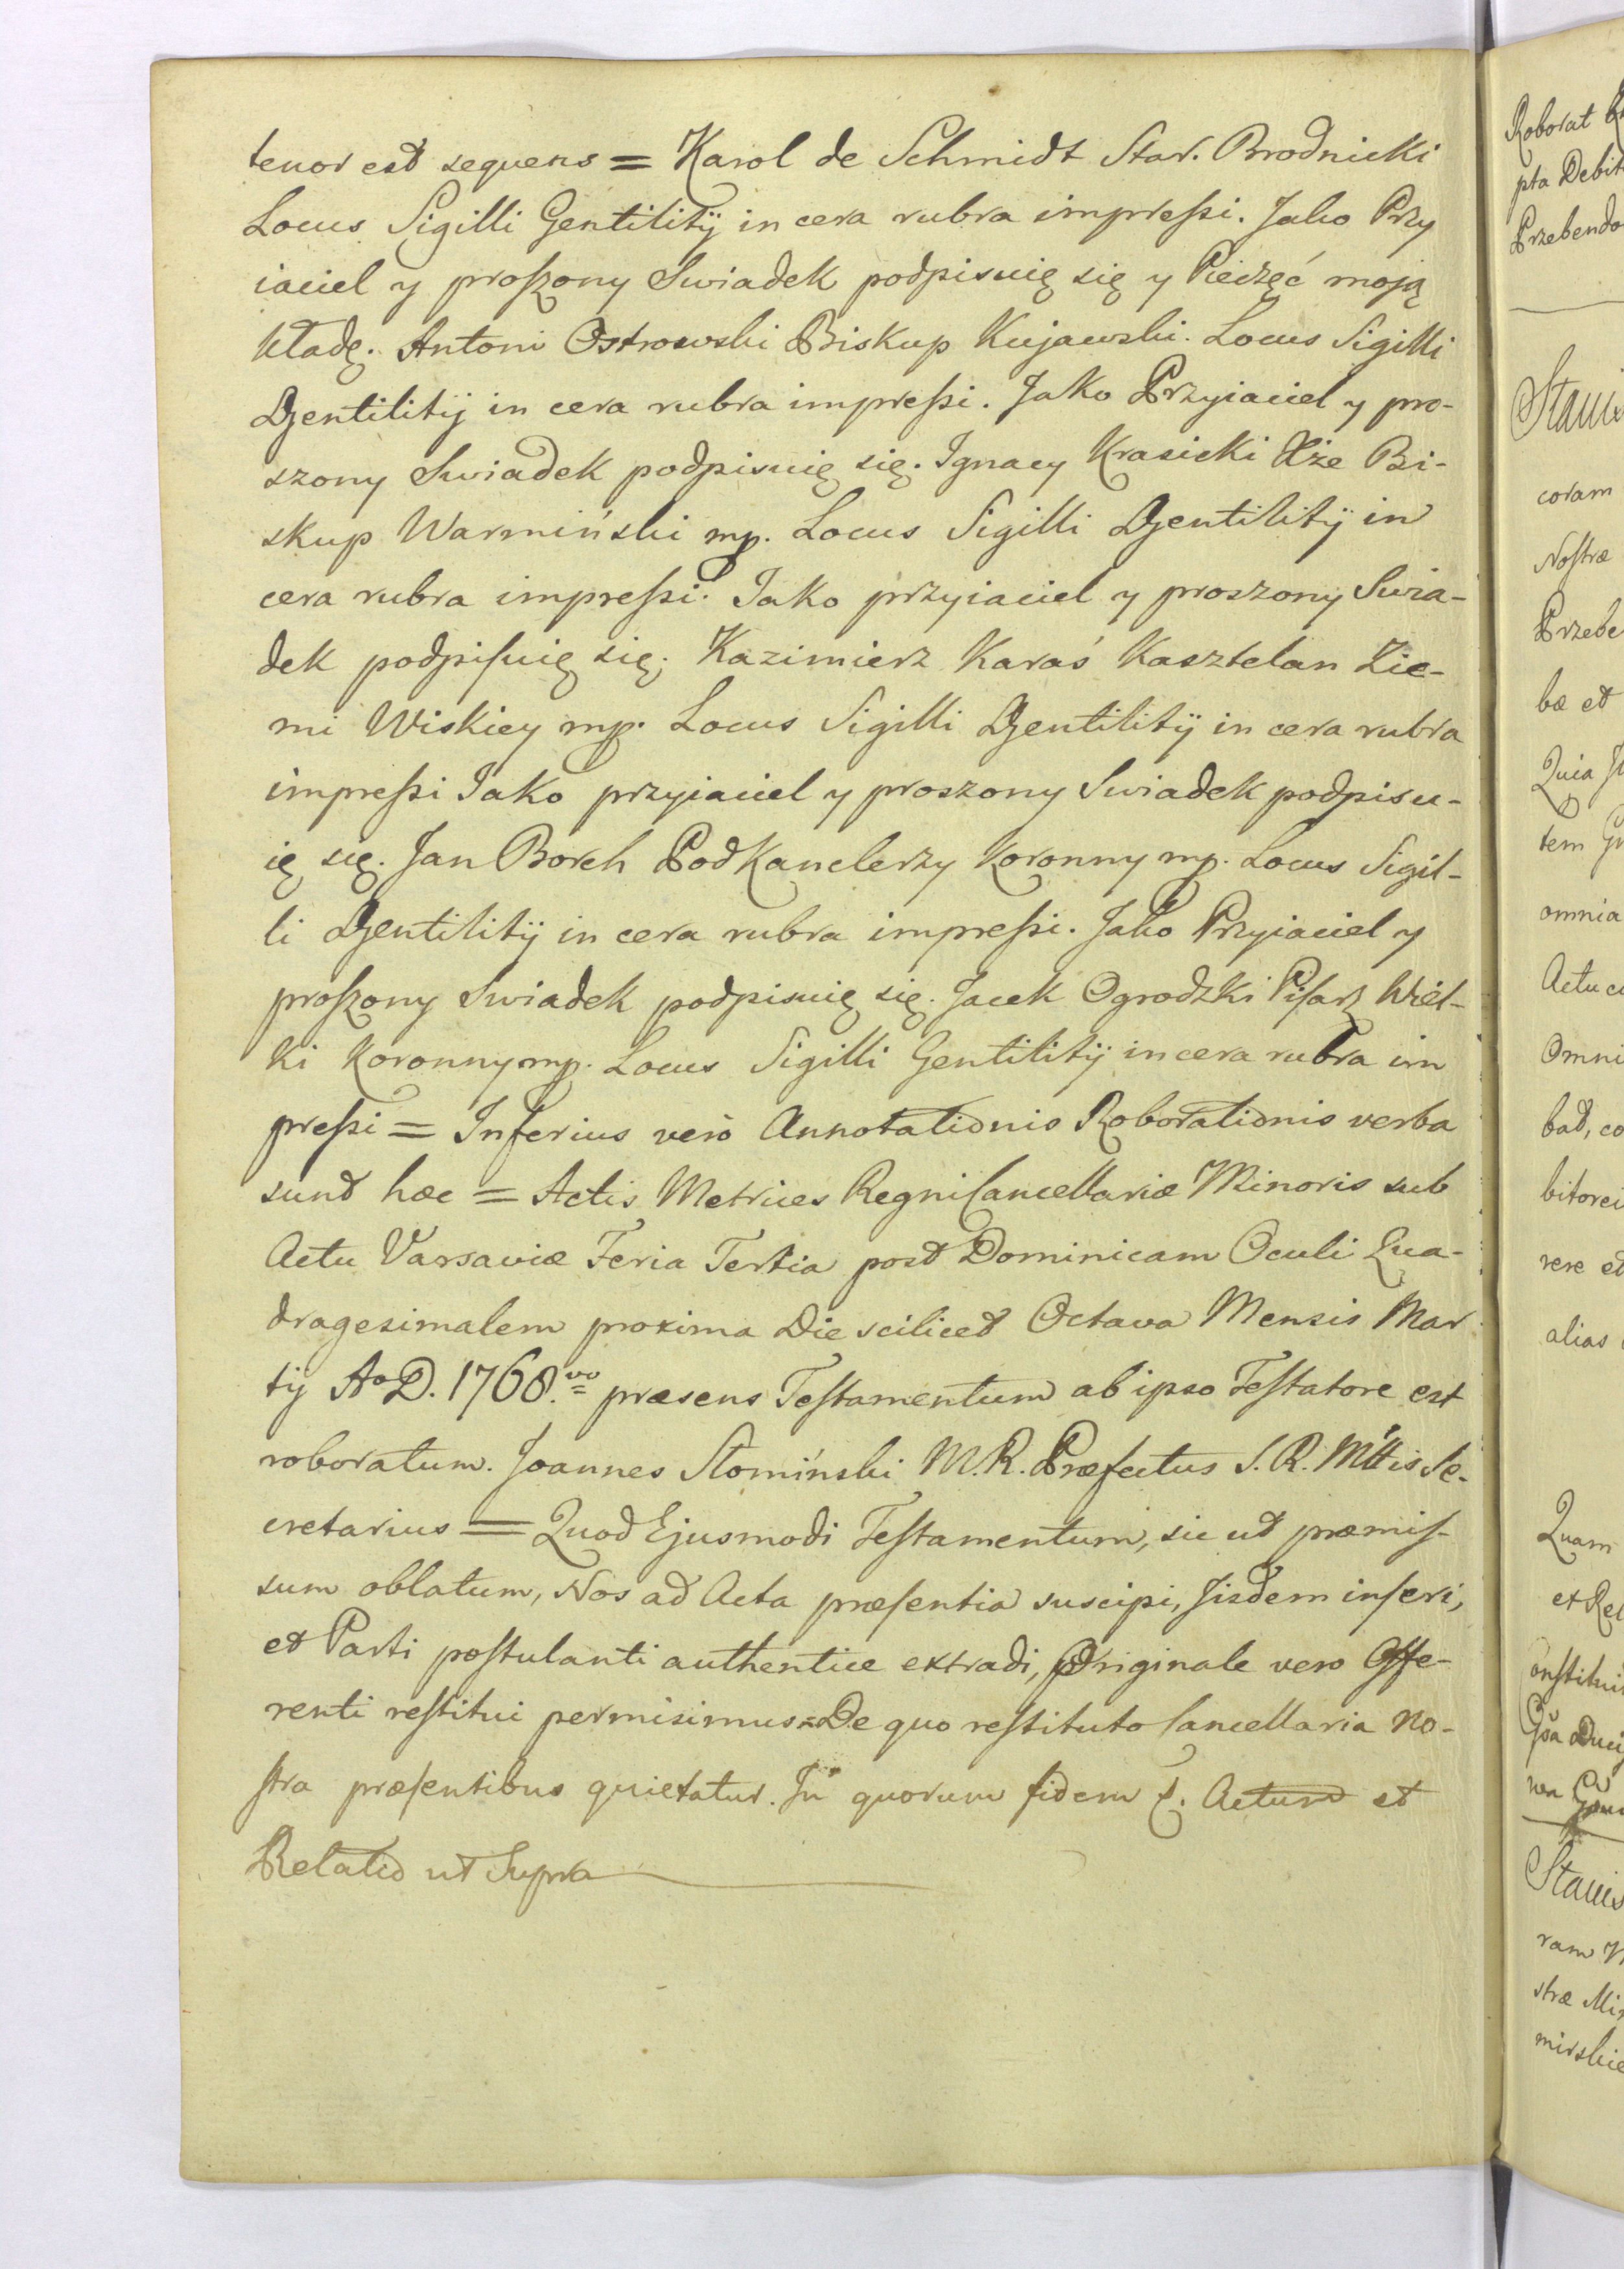 tenor est sequens = Karol de Schmidt Star. Brodnicki
Locus Sigilli Gentilitij in cera rubra impreſsi. Jako Przy
iaciel y proſzony Swiadek podpisuię się y Pieczęć moją
kładę. Antoni Ostrowski Biskup Kujawski. Locus Sigilli
Gentilitij in cera rubra impreſsi. Jako Przyiaciel y pro-
szony Swiadek podpisuię się. Ignacy Krasicki Xże Bi-
skup Warmiński mp. Locus Sigilli Gentilitij in
cera rubra impreſsi. Jako przyiaciel y proszony Swia-
dek podpiſuię się. Kazimierz Karaś Kasztelan Zie-
mi Wiskiey mp. Locus Sigilli Gentilitij in cera rubra
impreſsi Jako przyiaciel y proszony Swiadek podpisu-
ię się. Jan Borch PodKanclerzy Koronny mp. Locus Sigil-
li Gentilitij in cera rubra impreſsi. Jako Przyiaciel y
proſzony Swiadek podpisuię się. Jacek Ogrodzki Piſarz Wiel-
ki Koronny mp. Locus Sigilli Gentilitij in cera rubra im
preſsi = Inferius verò Annotationis Roborationis verba
sunt hæc = Actis Metrices Regni Cancellariæ Minoris sub
Actu Varsaviæ Feria Tertia post Dominicam Oculi Qua-
dragesimalem proxima Die scilicet Octava Mensis Mar
tij Aº D. 1768.vo præsens Teſtamentum ab ipso Teſtatore est
roboratum. Joannes Słomiński M. R. Præfectus S. R. Mttis Se-
cretarius = Quod Ejusmodi Teſtamentum, sic ut præmiſ-
sum oblatum, Nos ad Acta præſentia suscipi, Jisdem inſeri,
et Parti poſtulanti authentice extradi, Originale vero Offe-
renti reſtitui permisimus = De quo reſtituto Cancellaria No-
ſtra præſentibus quietatur. In quorum fidem &. Actum et
Relatio ut Supra
Roborat
pta Debit
Przebendo
Stanis
coram
Noſtræ
Przebe
bæ et
Quia
tem
omnia
Actu
Omni
bat, co
bitorei
rere et
alias
Quam
et Rel
onſtitui
Stanis
ram
stræ Mi
mirskie